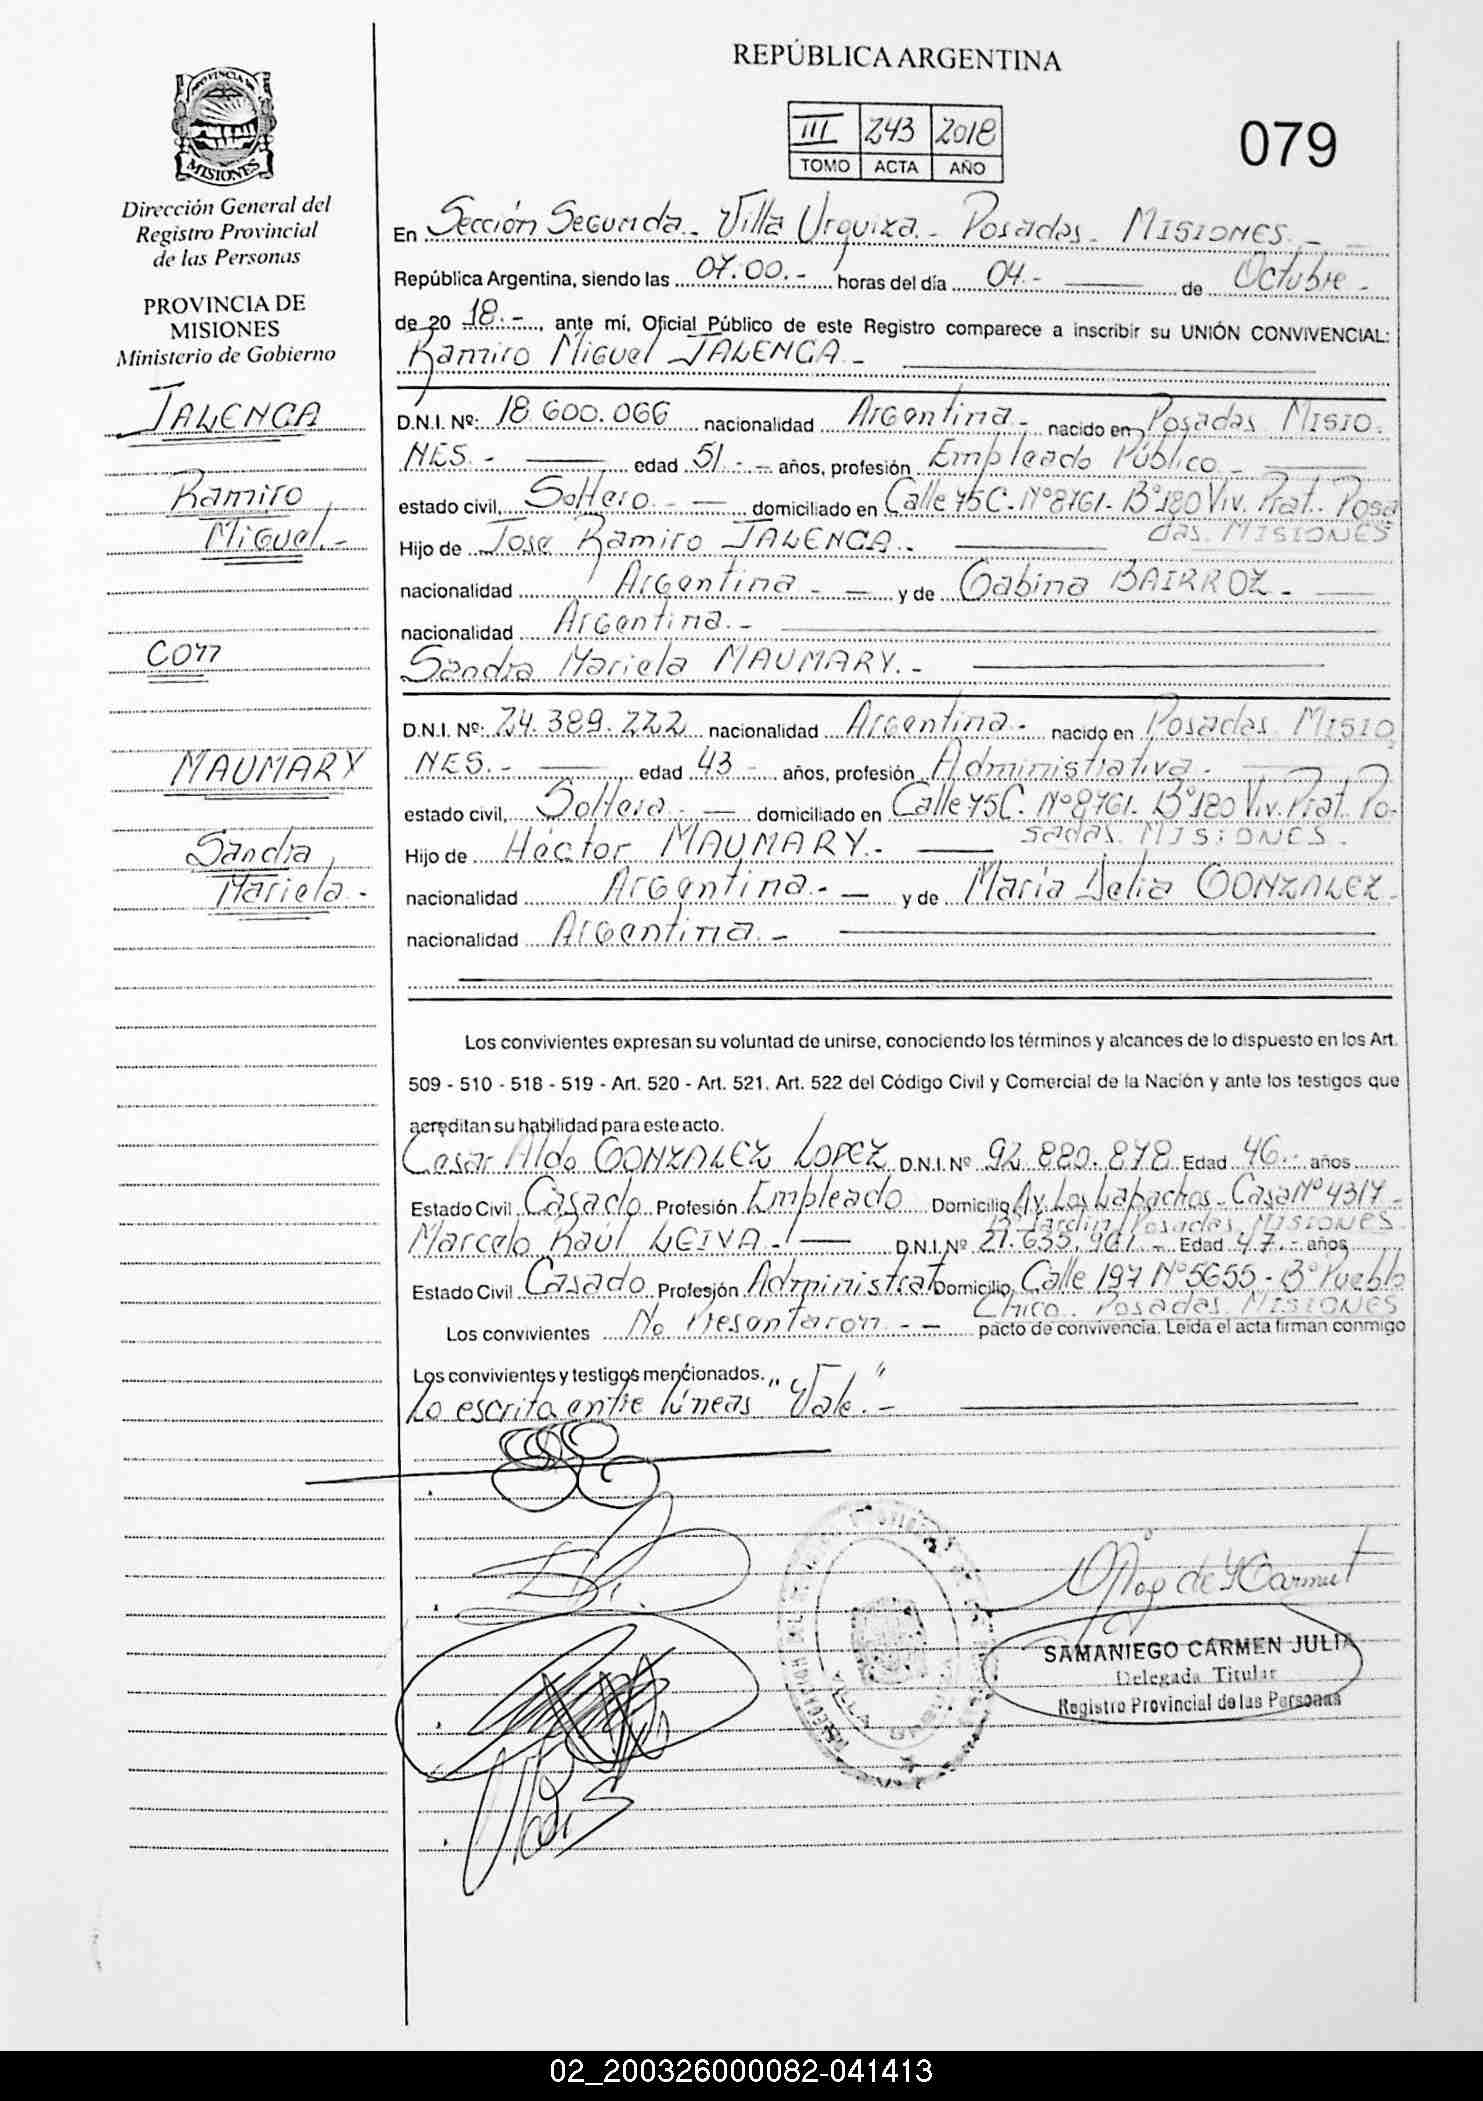 REPÚBLICA ARGENTINA
III 243 2018
TOMO ACTA AÑO
079
PROVINCIA DE
MISIONES
Dirección General del
Registro Provincial
de las Personas
PROVINCIA DE
MISIONES
Ministerio de Gobierno
JALENCA
Ramiro
Miguel.-
con
MAUMARY
Sandra
Mariela.-
En Sección Segunda.- Villa Urquiza.- Posadas.- MISIONES.-
República Argentina, siendo las 07:00.- horas del día 04.- de Octubre.-
de 20 18.-, ante mí, Oficial Público de este Registro comparece a inscribir su UNIÓN CONVIVENCIAL:
Ramiro Miguel JALENCA.-
D.N.I. Nº: 18.600.066 nacionalidad Argentina.- nacido en Posadas MISIO.
NES.- edad 51.- años, profesión Empleado Público.-
estado civil, Soltero.- domiciliado en Calle 75C. Nº8761. Bº180 Viv. Prat. Posa
das. MISIONES
Hijo de Jose Ramiro JALENCA.-
nacionalidad Argentina.- y de Gabina BAIRROZ.-
nacionalidad Argentina.-
Sandra Mariela MAUMARY.-
D.N.I. Nº: 24.389.222 nacionalidad Argentina.- nacido en Posadas MISIO
NES.- edad 43.- años, profesión Administrativa.-
estado civil, Soltera.- domiciliado en Calle 75C. Nº8761. Bº180 Viv. Prat. Po-
sadas. MISIONES.
Hijo de Héctor MAUMARY.-
nacionalidad Argentina.- y de María Delia GONZALEZ.-
nacionalidad Argentina.-
Los convivientes expresan su voluntad de unirse, conociendo los términos y alcances de lo dispuesto en los Art.
509 - 510 - 518 - 519 - Art. 520 - Art. 521. Art. 522 del Código Civil y Comercial de la Nación y ante los testigos que
acreditan su habilidad para este acto.
Cesar Aldo GONZALEZ LOPEZ D.N.I. Nº 92.880.878 Edad 46.- años
Estado Civil Casado Profesión Empleado Domicilio Av. Los Lapachos. Casa Nº 4317.-
Bº Jardín Posadas MISIONES.
Marcelo Raúl LEIVA.- D.N.I. Nº 21.635.961.- Edad 47.- años
Estado Civil Casado Profesión Administrat Domicilio Calle 197 Nº5655.- Bº Pueblo
Chico. Posadas. MISIONES
Los convivientes No Presentaron.- pacto de convivencia. Leída el acta firman conmigo
Los convivientes y testigos mencionados.
Lo escrito entre líneas "Vale".-
SAMANIEGO CARMEN JULIA
Delegada Titular
Registro Provincial de las Personas
02_200326000082-041413